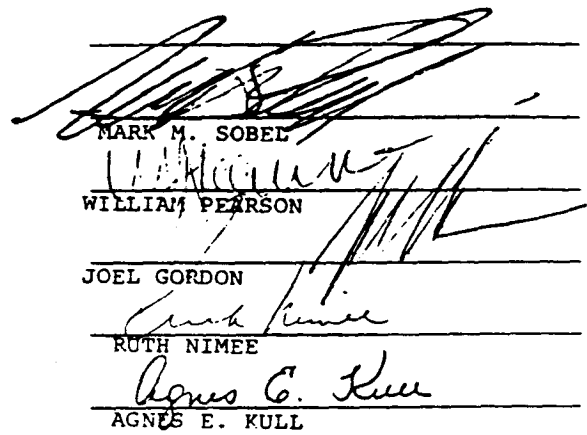 MARK M. SOBEL
WILLIAM PEARSON
JOEL GORDON
Ruth Nimee
RUTH NIMEE
Agnes E. Kull
AGNES E. KULL